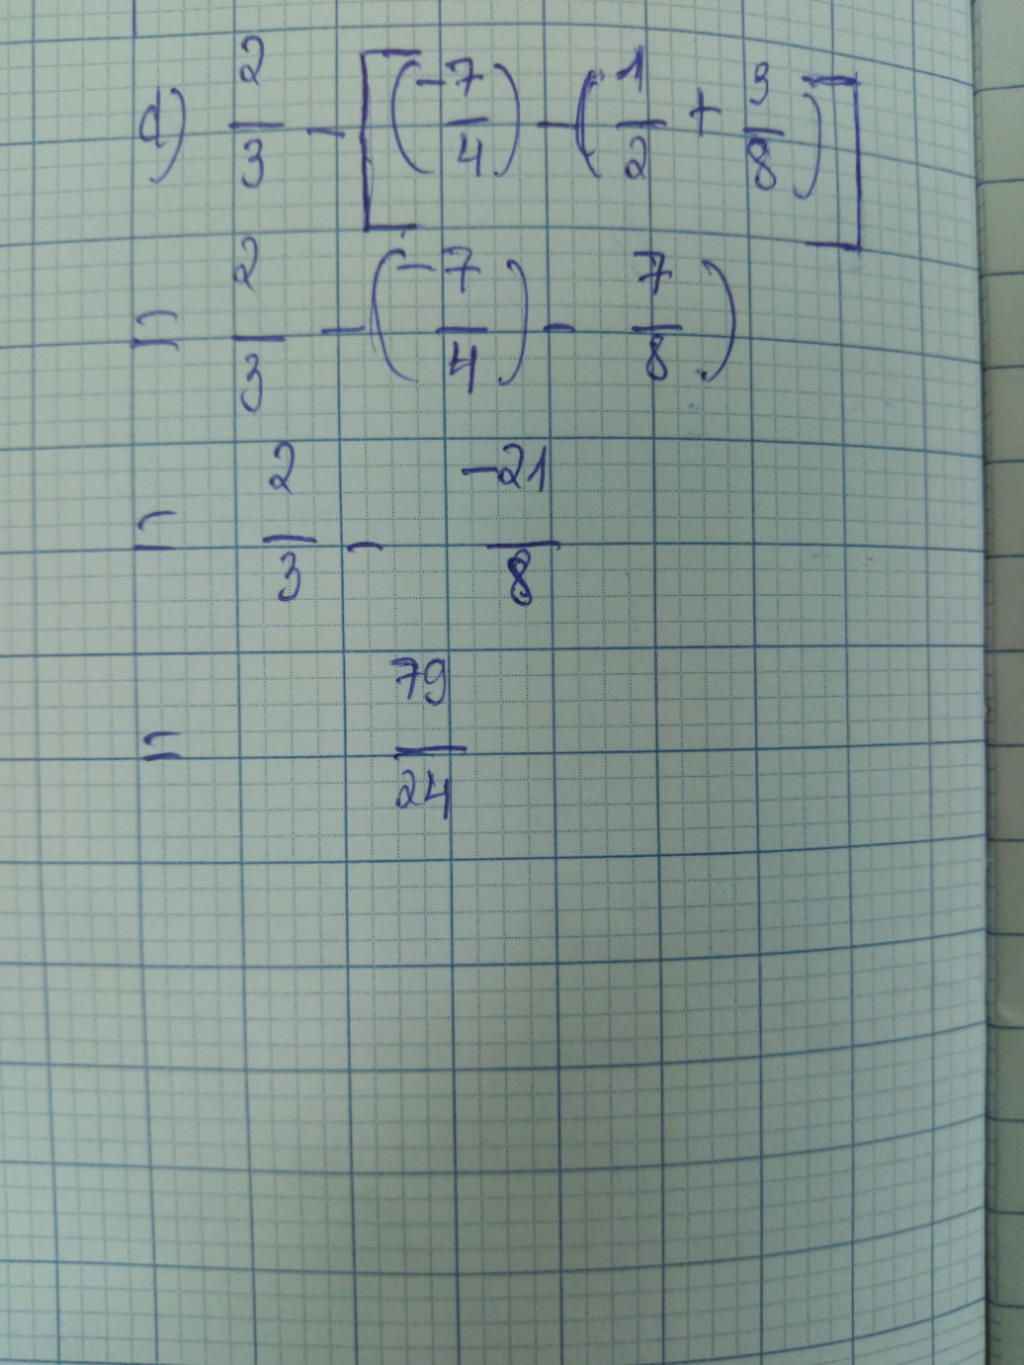 d) 2/3 - [(-7/4) - (1/2 + 3/8)]
= 2/3 - (-7/4) - 7/8)
= 2/3 - -21/8
= 79/24